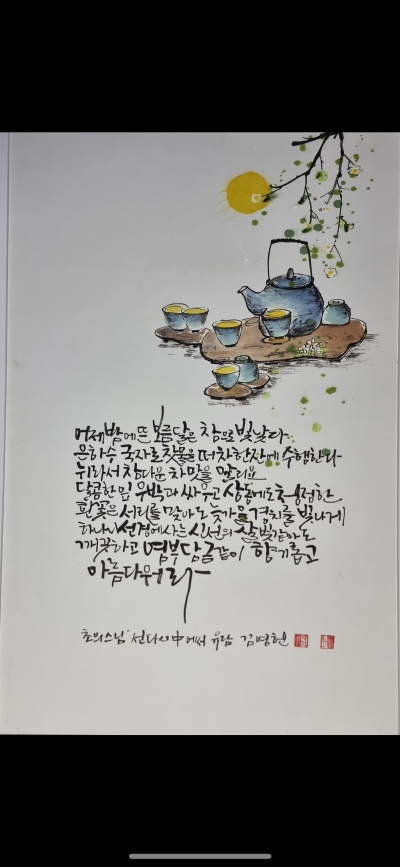 어제밤에뜬 보름달은 참으로 빛났다
은하수 국자로 찻물을 떠 차한잔에 수행한다
뉘라서 참다운 차맛을 말리요
달콤한잎 우박과 싸우고 삼동에도 청정한
흰꽃은 서리를 맞아도 늦가을경치를 빛나게
하나니 선경에사는 신선의 살빛같아도
깨끗하고 염부단금같이 향기롭고
아름다워라
초의스님 선다시中에서 유담 김영현